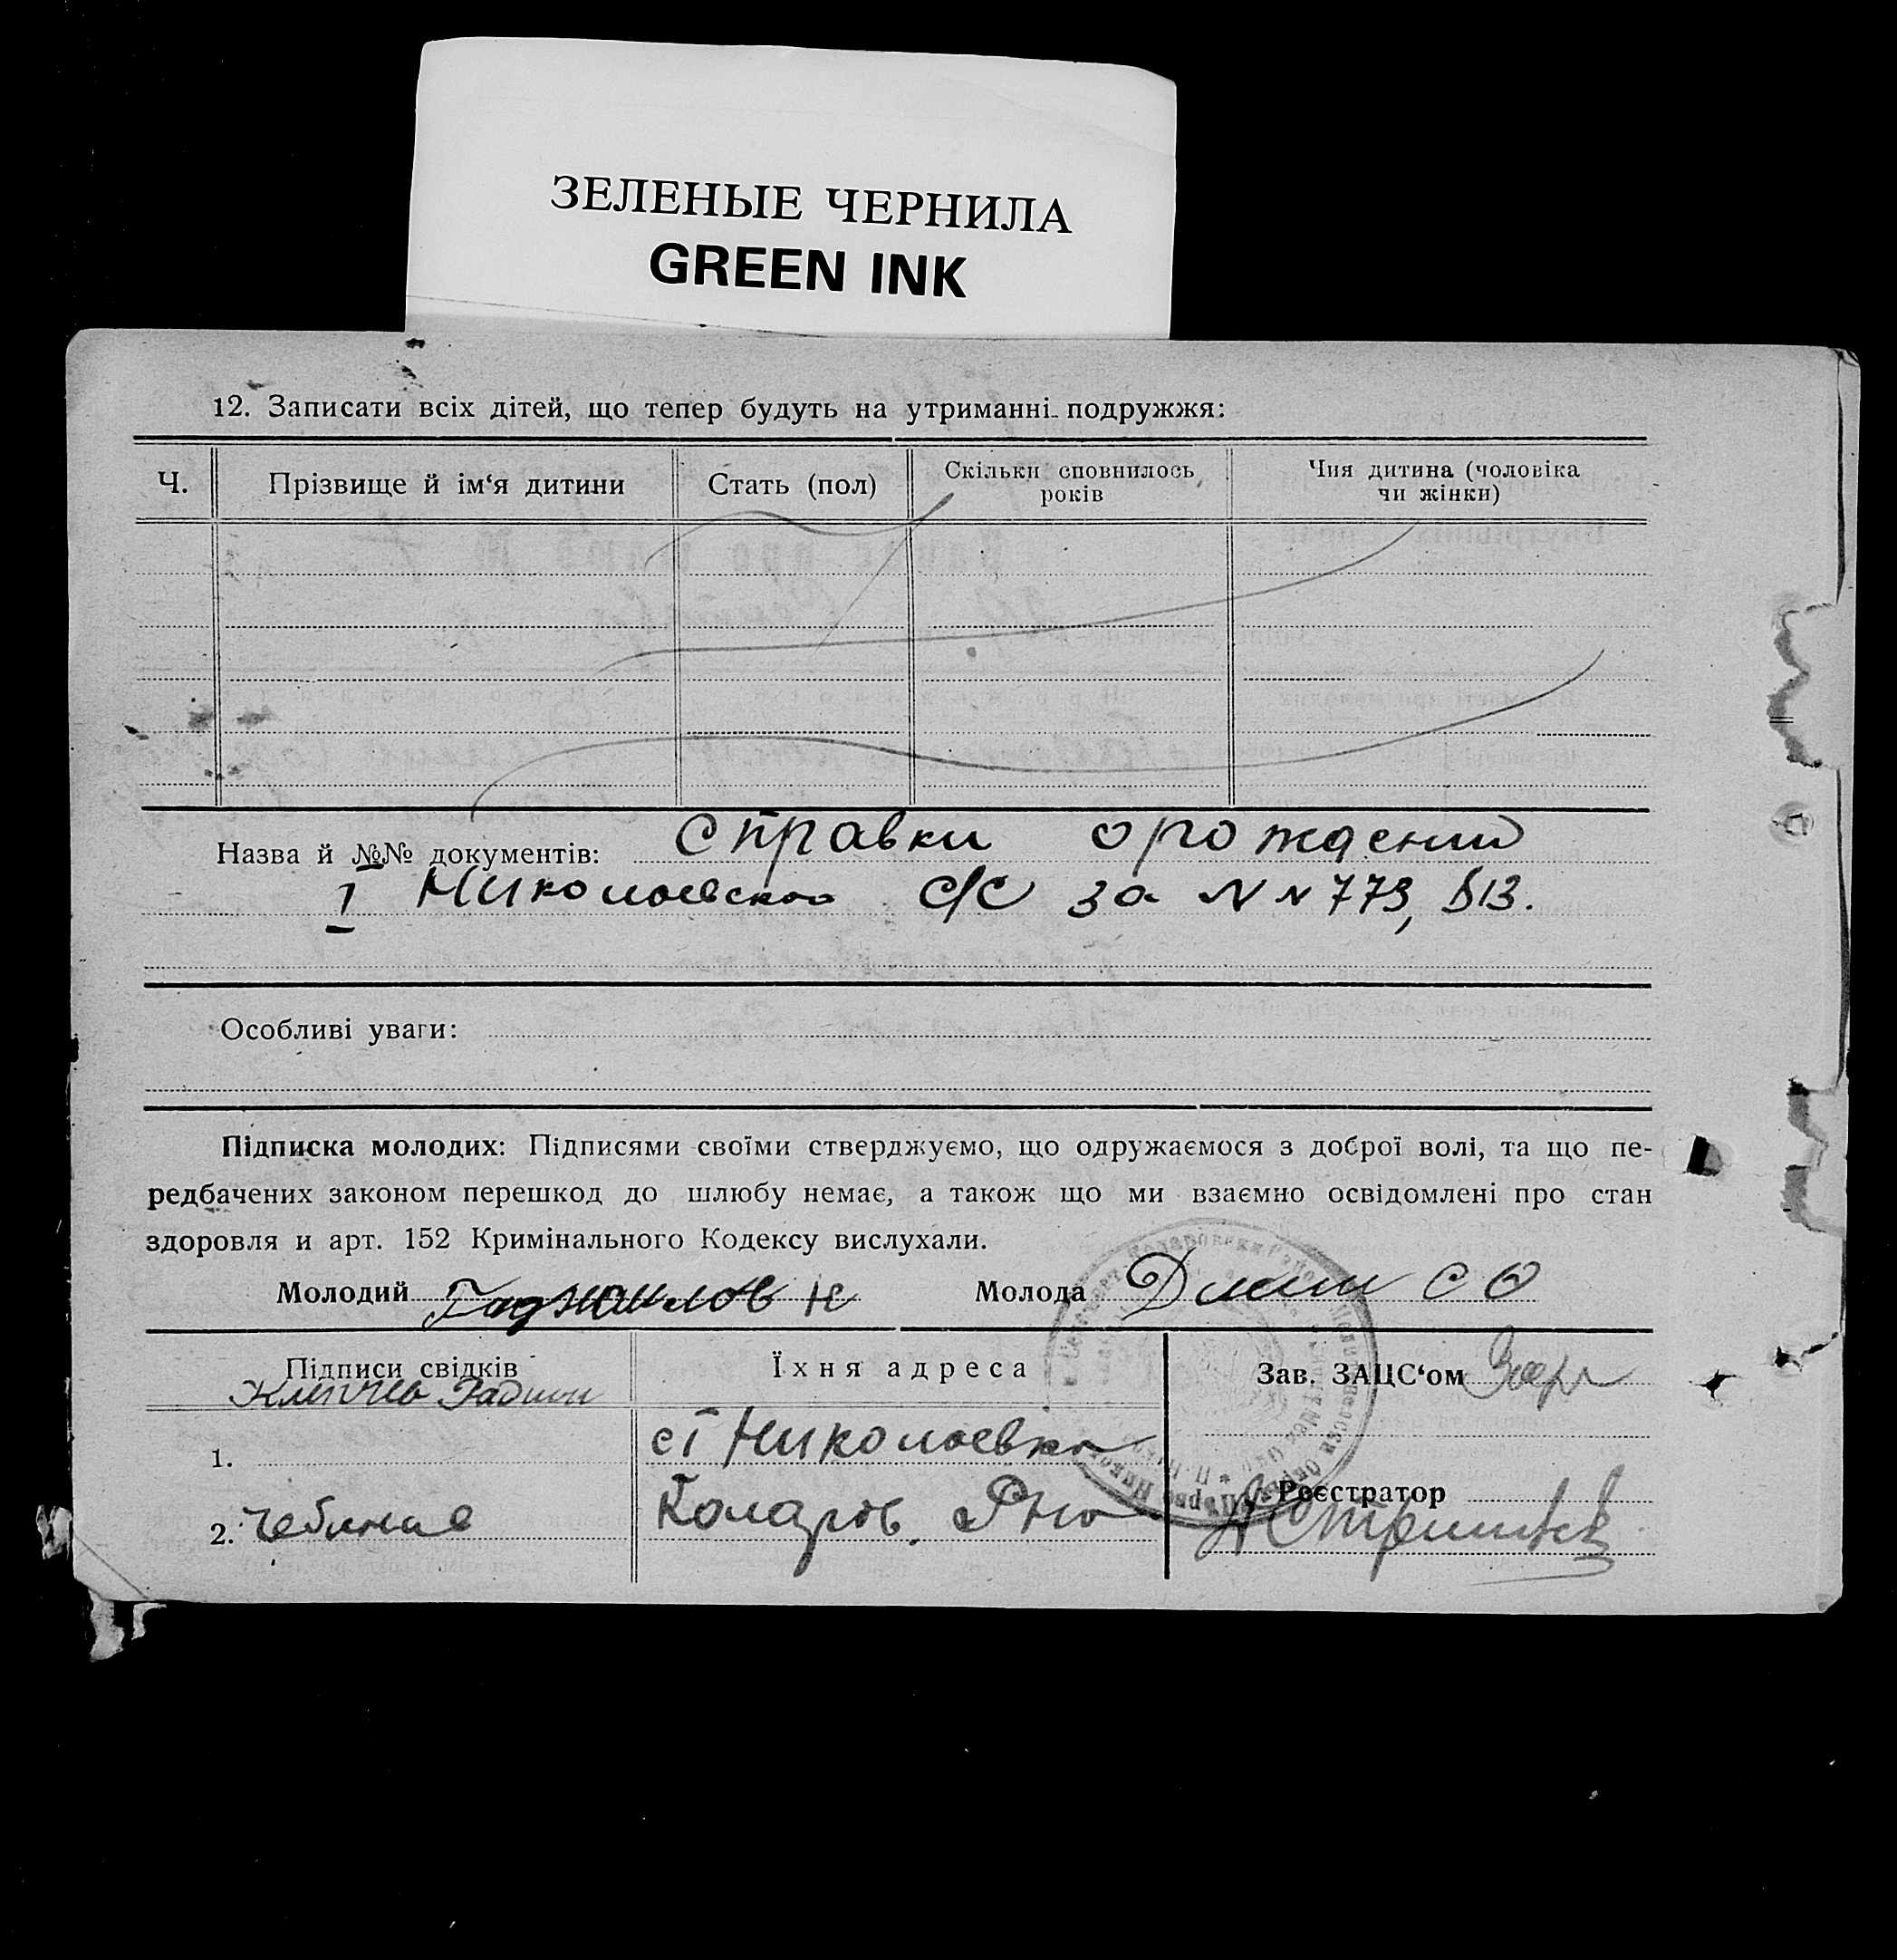 ЗЕЛЕНЫЕ ЧЕРНИЛА
GREEN INK
12. Записати всіх дітей, що тепер будуть на утриманні подружжя:
Ч.
Прізвище й ім‘я дитини
Стать (пол)
Скільки сповнилось років
Чия дитина (чоловіка чи жінки)
Назва й №№ документів: справки о рождении
I Николаевского с/с за N N 773, 813.
Особливі уваги:
Підписка молодих: Підписями своїми стверджуємо, що одружаємося з доброї волі, та що пе-
редбачених законом перешкод до шлюбу немає, а також що ми взаємно освідомлені про стан
здоровля и арт. 152 Кримінального Кодексу вислухали.
Молодий Гаджилов Н Молода
Підписи свідків
Їхня адреса
Зав. ЗАЦС‘ом
1.
с I Николаевка
2.
Коларов. Р-на
Реєстратор